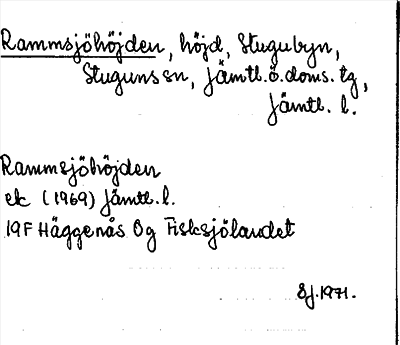 Rammsjöhöjden, höjd, Stugubyn,
Stuguns sn, Jämtl.ö.doms.tg,
Jämtl. l.
Rammsjöhöjden
ek (1969) Jämtl. l.
19F Häggenås Og Fisksjölandet
Sj. 1971.